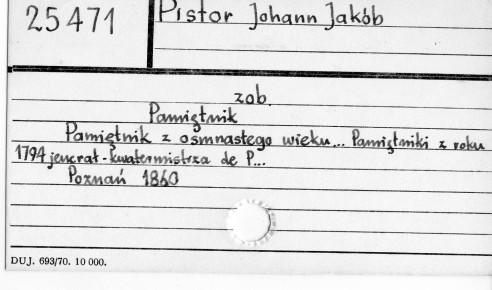 25471
Pistor Johann Jakób
zob.
Pamiętnik
Pamiętnik z ośmnastego wieku... Pamiętniki z roku
1794 jenerał-kwatermistrza de P...
Poznań 1860
DUJ. 693/70. 10 000.